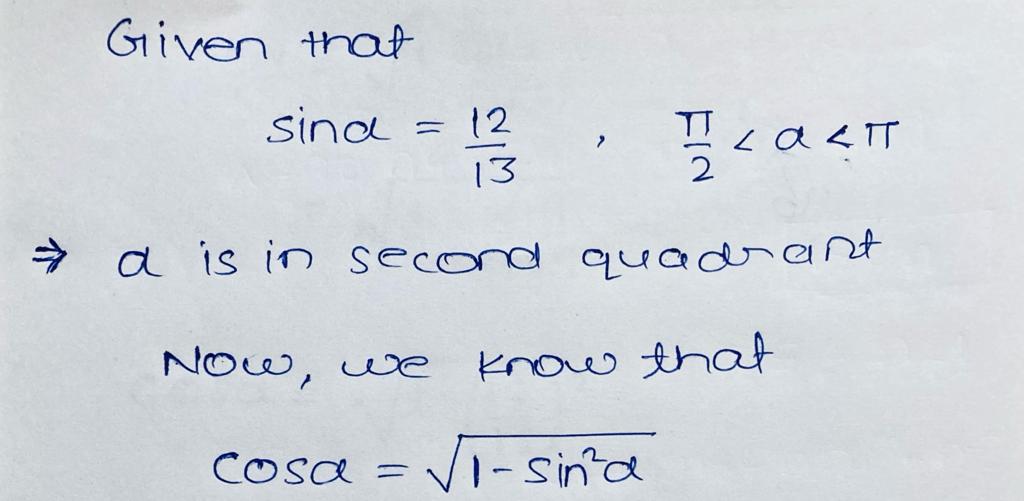 Given that
sinα = 12/13 , π/2 < α < π
⇒ α is in second quadrant
Now, we know that
cosα = √1-sin²α